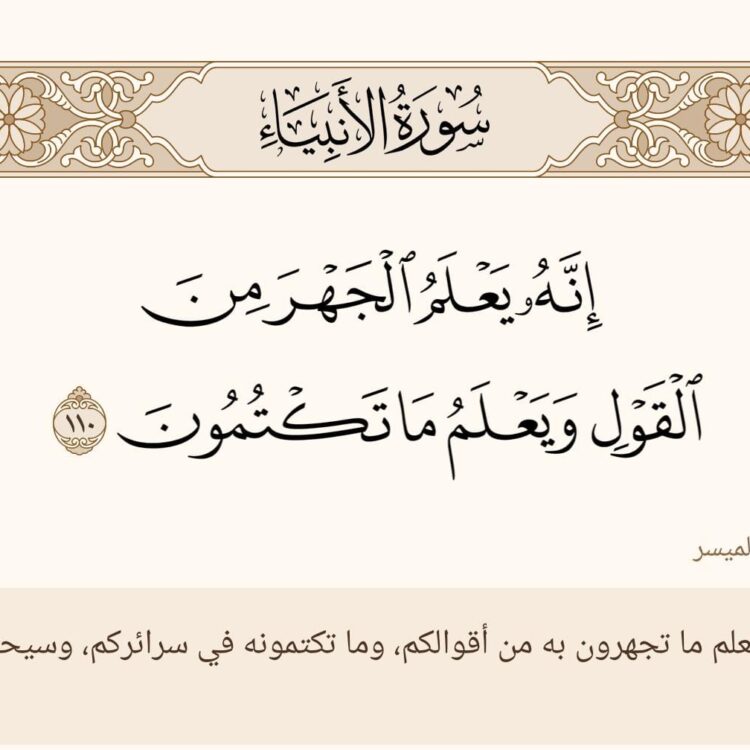 سُورَةُ الأَنبِيَاءِ
إِنَّهُۥ يَعۡلَمُ ٱلۡجَهۡرَ مِنَ
ٱلۡقَوۡلِ وَيَعۡلَمُ مَا تَكۡتُمُونَ ١١٠
لميسر
علم ما تجهرون به من أقوالكم، وما تكتمونه في سرائركم، وسيحـ